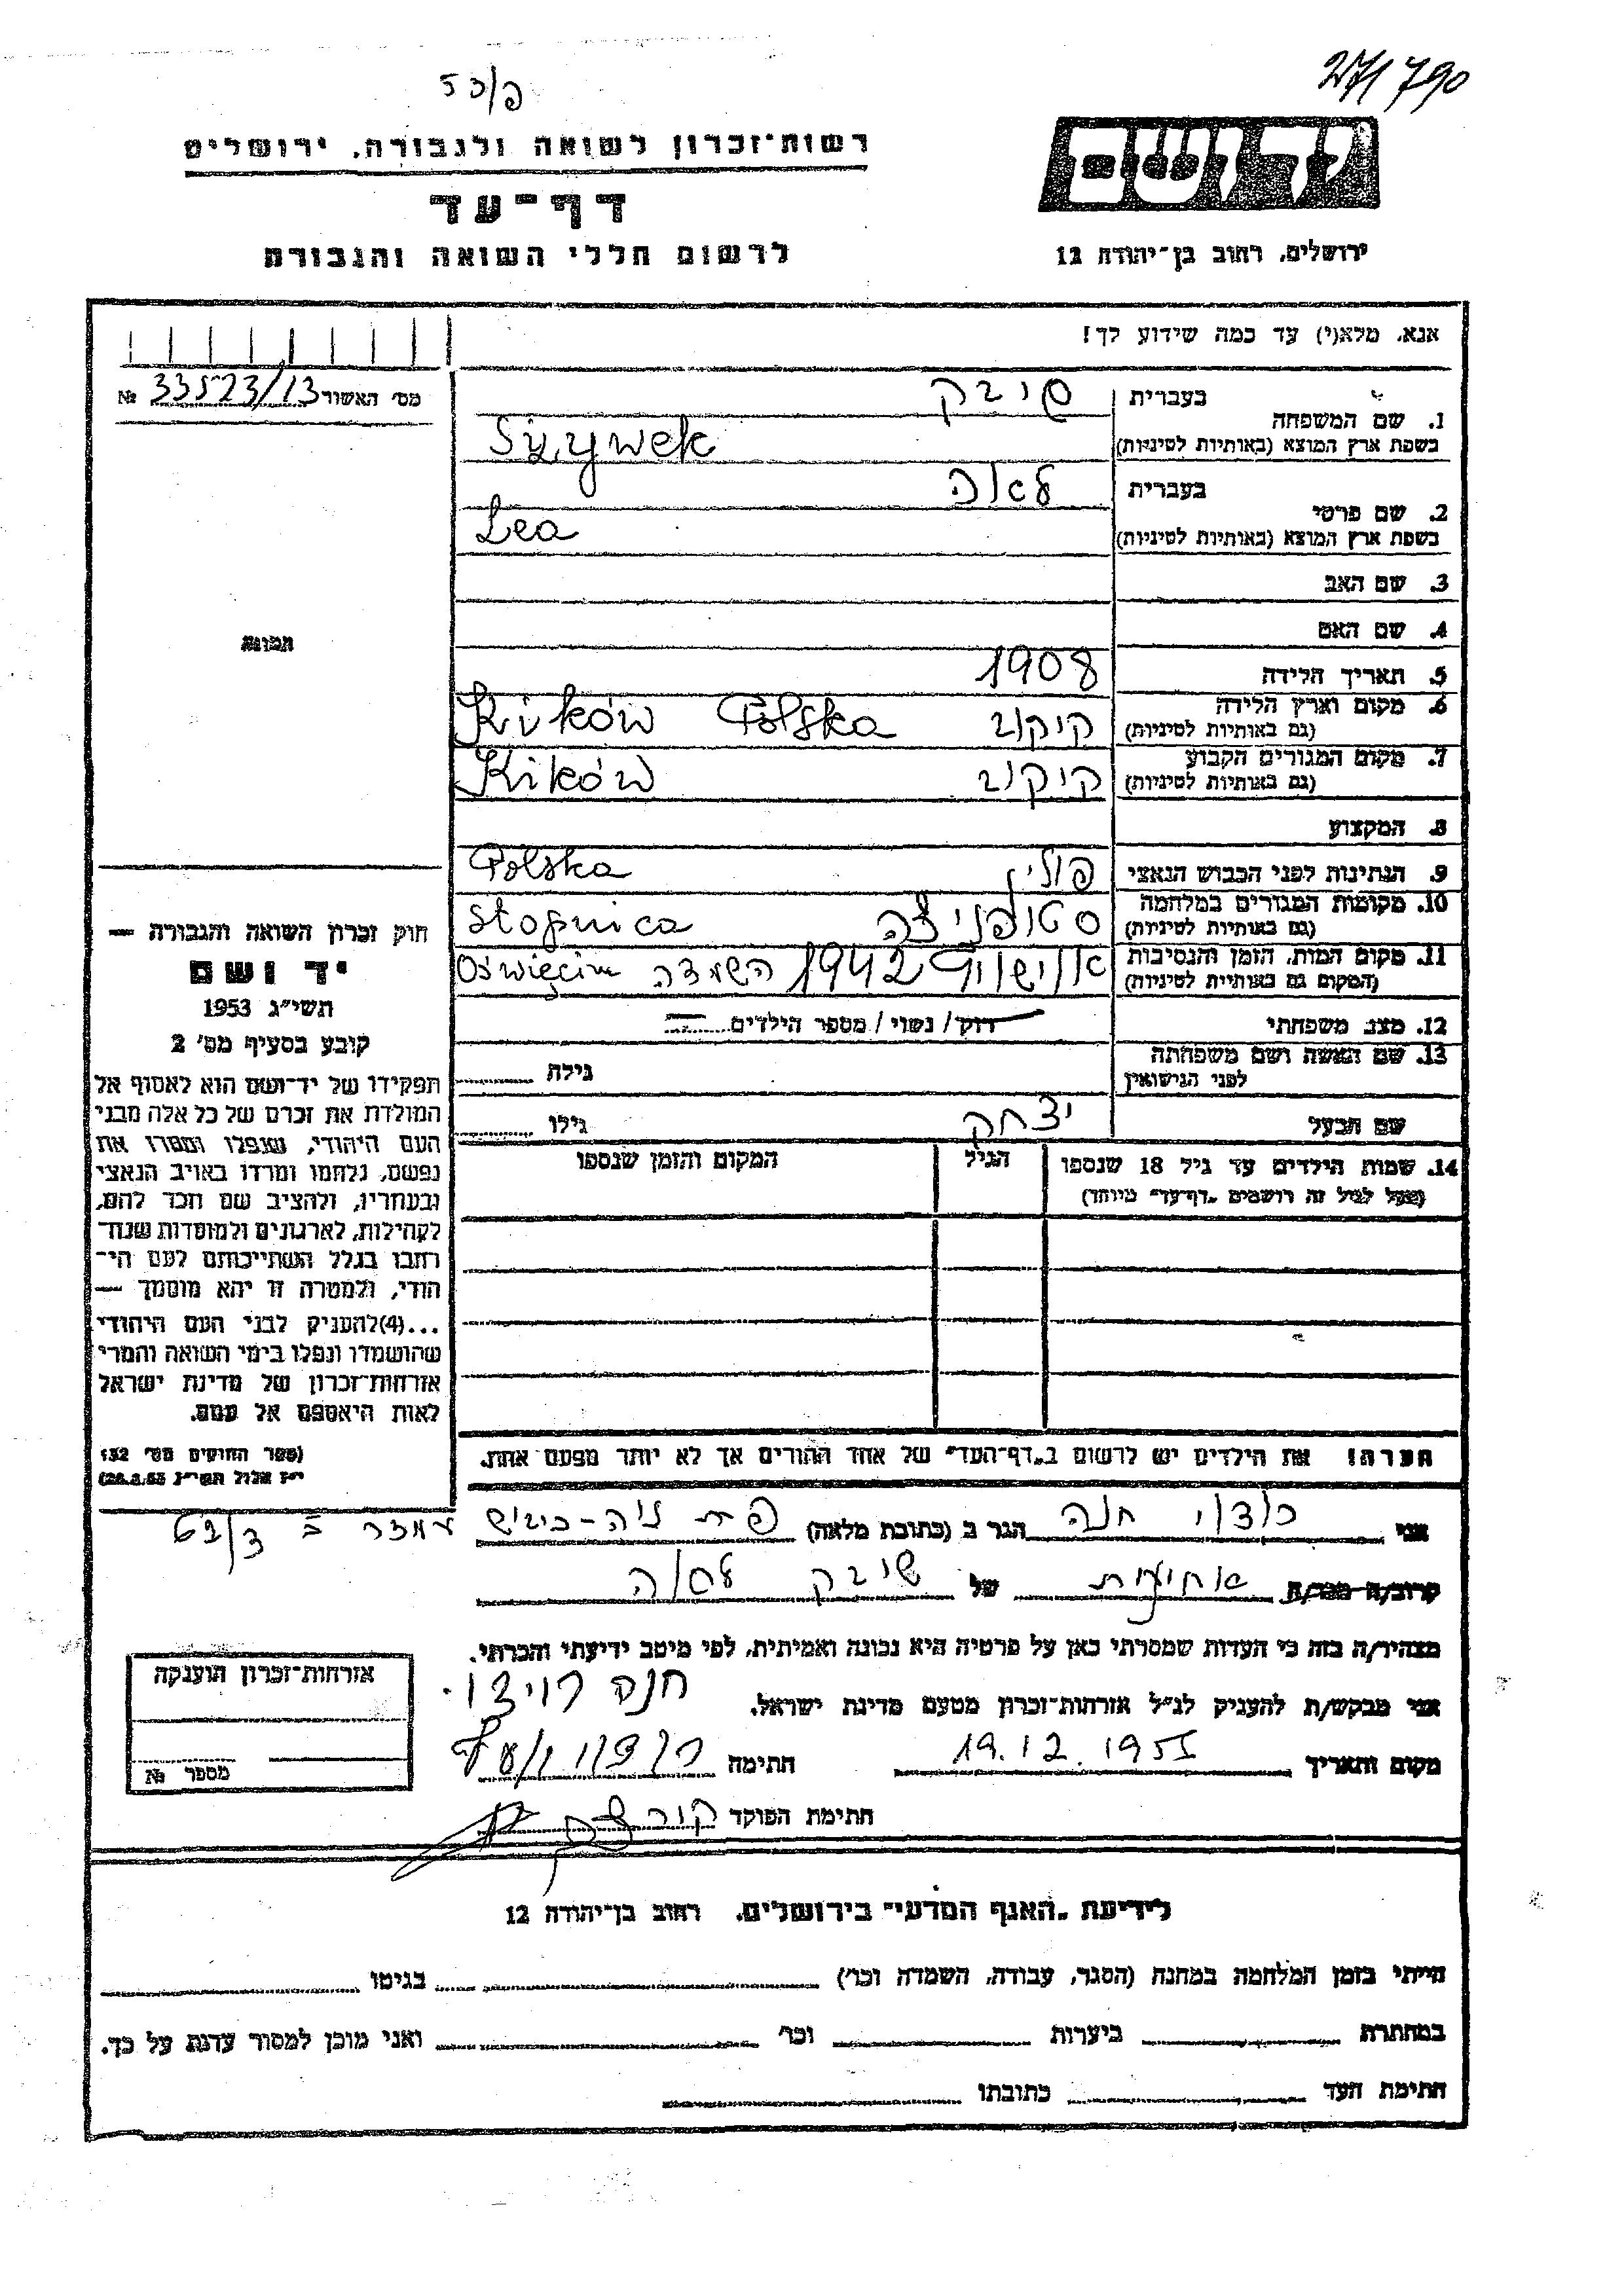 271790
פ/53
יד ושם
רשות־זכרון לשואה ולגבורה, ירושלים
דף־עד
לרשום חללי השואה והגבורה
ירושלים, רחוב בן־יהודה 12
אנא, מלא(י) עד כמה שידוע לך!
מס׳ האשור № 33523/13
1. שם המשפחה
בעברית שיבק
בשפת ארץ המוצא (באותיות לטיניות) Szywek
2. שם פרטי
בעברית לאה
בשפת ארץ המוצא (באותיות לטיניות) Lea
3. שם האב
4. שם האם
תמונה
5. תאריך הלידה 1908
6. מקום וארץ הלידה
(גם באותיות לטיניות) קיקוב Kików Polska
7. מקום המגורים הקבוע
(גם באותיות לטיניות) קיקוב Kików
8. המקצוע
9. הנתינות לפני הכבוש הנאצי פולין Polska
10. מקומות המגורים במלחמה
(גם באותיות לטיניות) סטופניצה Stopnica
11. מקום המות, הזמן והנסיבות
(המקום גם באותיות לטיניות) 1942 השמדה Oświęcim
12. מצב משפחתי רוק/ נשוי / מספר הילדים
13. שם האשה ושם משפחתה
לפני הנישואין גילה
שם הבעל יצחק גילו
14. שמות הילדים עד גיל 18 שנספו הגיל המקום והזמן שנספו
(מעל לגיל זה רושמים „דף־עד״ מיוחד)
הערה! את הילדים יש לרשום ב„דף־העד״ של אחד ההורים אך לא יותר מפעם אחת.
חוק זכרון השואה והגבורה —
יד ושם
תשי״ג 1953
קובע בסעיף מס׳ 2
תפקידו של יד־ושם הוא לאסוף אל
המולדת את זכרם של כל אלה מבני
העם היהודי, שנפלו ומסרו את
נפשם, נלחמו ומרדו באויב הנאצי
ובעוזריו, ולהציב שם וזכר להם,
לקהילות, לארגונים ולמוסדות שנח־
רבו בגלל השתייכותם לעם הי־
הודי, ולמטרה זו יהא מוסמך —
...(4)להעניק לבני העם היהודי
שהושמדו ונפלו בימי השואה והמרי
אזרחות־זכרון של מדינת ישראל
לאות היאספם אל עמם.
(ספר החוקים מס׳ 132
י״ז אלול תשי״ג 28.8.53)
אני חנה הגר ב (כתובת מלאה)
קרוב/ה מכר/ה אחינית של שיבק לאה
מצהיר/ה בזה כי העדות שמסרתי כאן על פרטיה היא נכונה ואמיתית, לפי מיטב ידיעתי והכרתי.
אני מבקש/ת להעניק לנ״ל אזרחות־זכרון מטעם מדינת ישראל. חנה
מקום ותאריך 19.12.1955 חתימה
חתימת הפוקד
אזרחות־זכרון הוענקה
מספר №
לידיעת „האגף המדעי״ בירושלים, רחוב בן־יהודה 12
הייתי בזמן המלחמה במחנה (הסגר, עבודה, השמדה וכר׳) בגיטו
במחתרת ביערות וכר׳ ואני מוכן למסור עדות על כך.
חתימת העד כתובתו